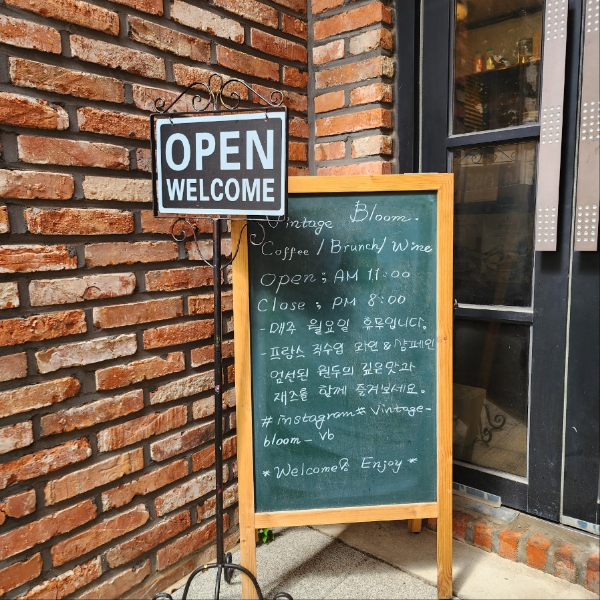 OPEN
WELCOME
Vintage Bloom.
Coffee / Brunch / Wine
Open ; AM 11:00
Close ; PM 8:00
- 매주 월요일 휴무입니다.
- 프랑스 직수입 와인 & 샴페인
엄선된 원두의 깊은맛과
재즈를 함께 즐겨보세요.
# instagram # vintage-
bloom_vb
* Welcome & Enjoy *